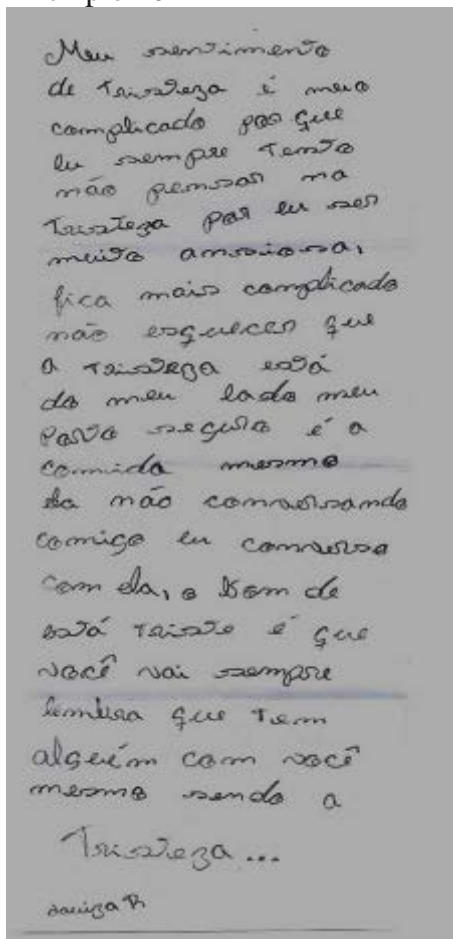 Meu sentimento
de Tristeza é meio
complicado por que
eu sempre Tento
não pensar na
Tristeza por eu ser
muito ansiosa,
fica mais complicado
não esquecer que
a Tristeza está
do meu lado meu
Porto seguro é a
comida mesmo
ela não conversando
comigo eu converso
com ela, o bom de
está Triste é que
você vai sempre
lembra que Tem
alguém com você
mesmo sendo a
Tristeza...